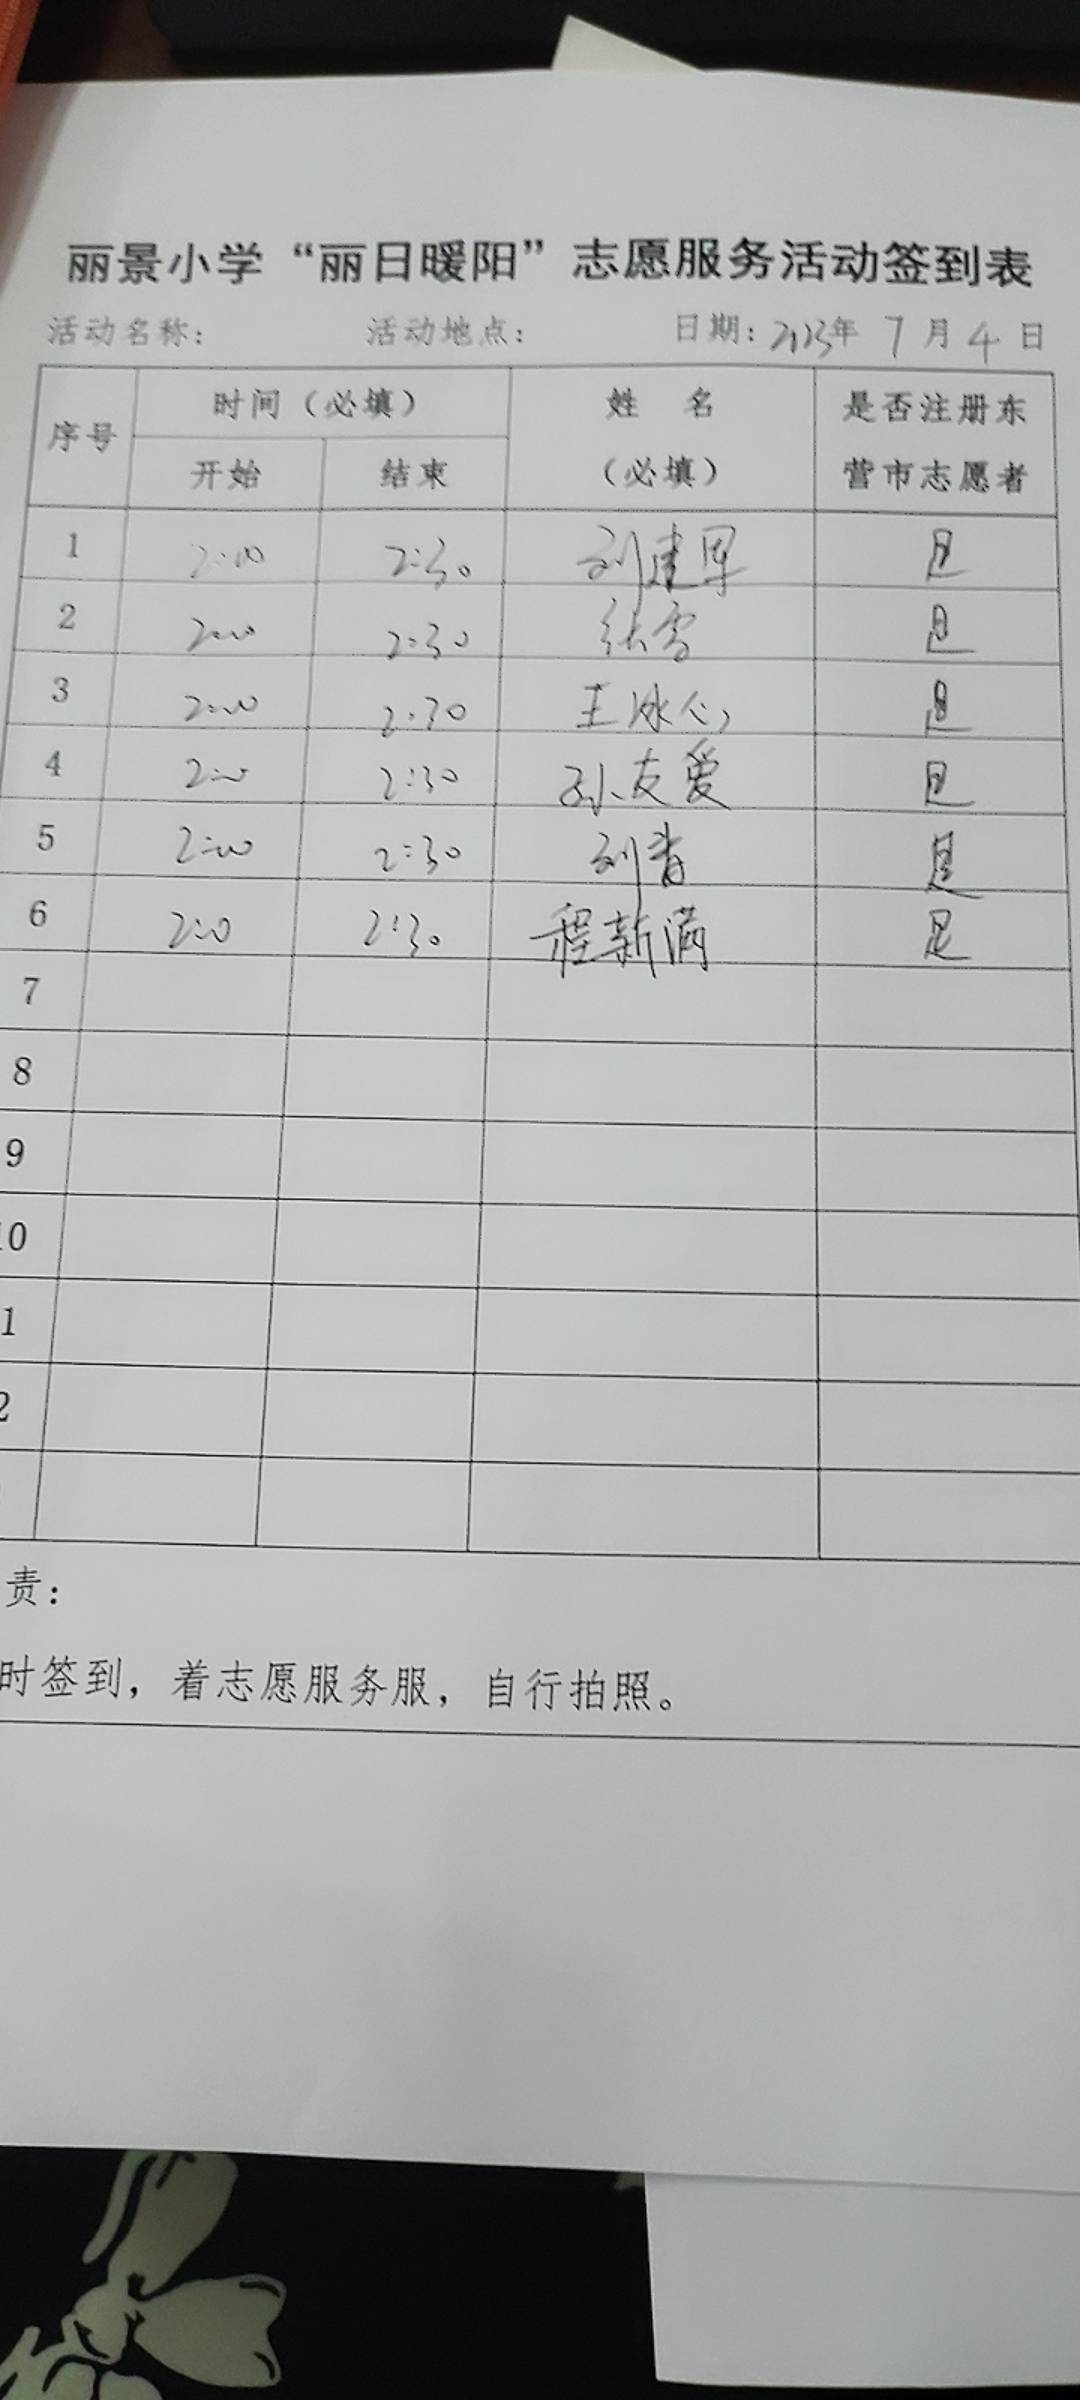 丽景小学“丽日暖阳”志愿服务活动签到表
活动名称： 活动地点： 日期：2023年 7 月 4 日
序号 时间（必填） 姓 名（必填） 是否注册东营市志愿者
开始 结束
1 2:00 2:30 刘建军 是
2 2:00 2:30 张雪 是
3 2:00 2:30 王冰心 是
4 2:00 2:30 孙友爱 是
5 2:00 2:30 刘青 是
6 2:00 2:30 程新满 是
7
8
9
10
1
2
责：
时签到，着志愿服务服，自行拍照。